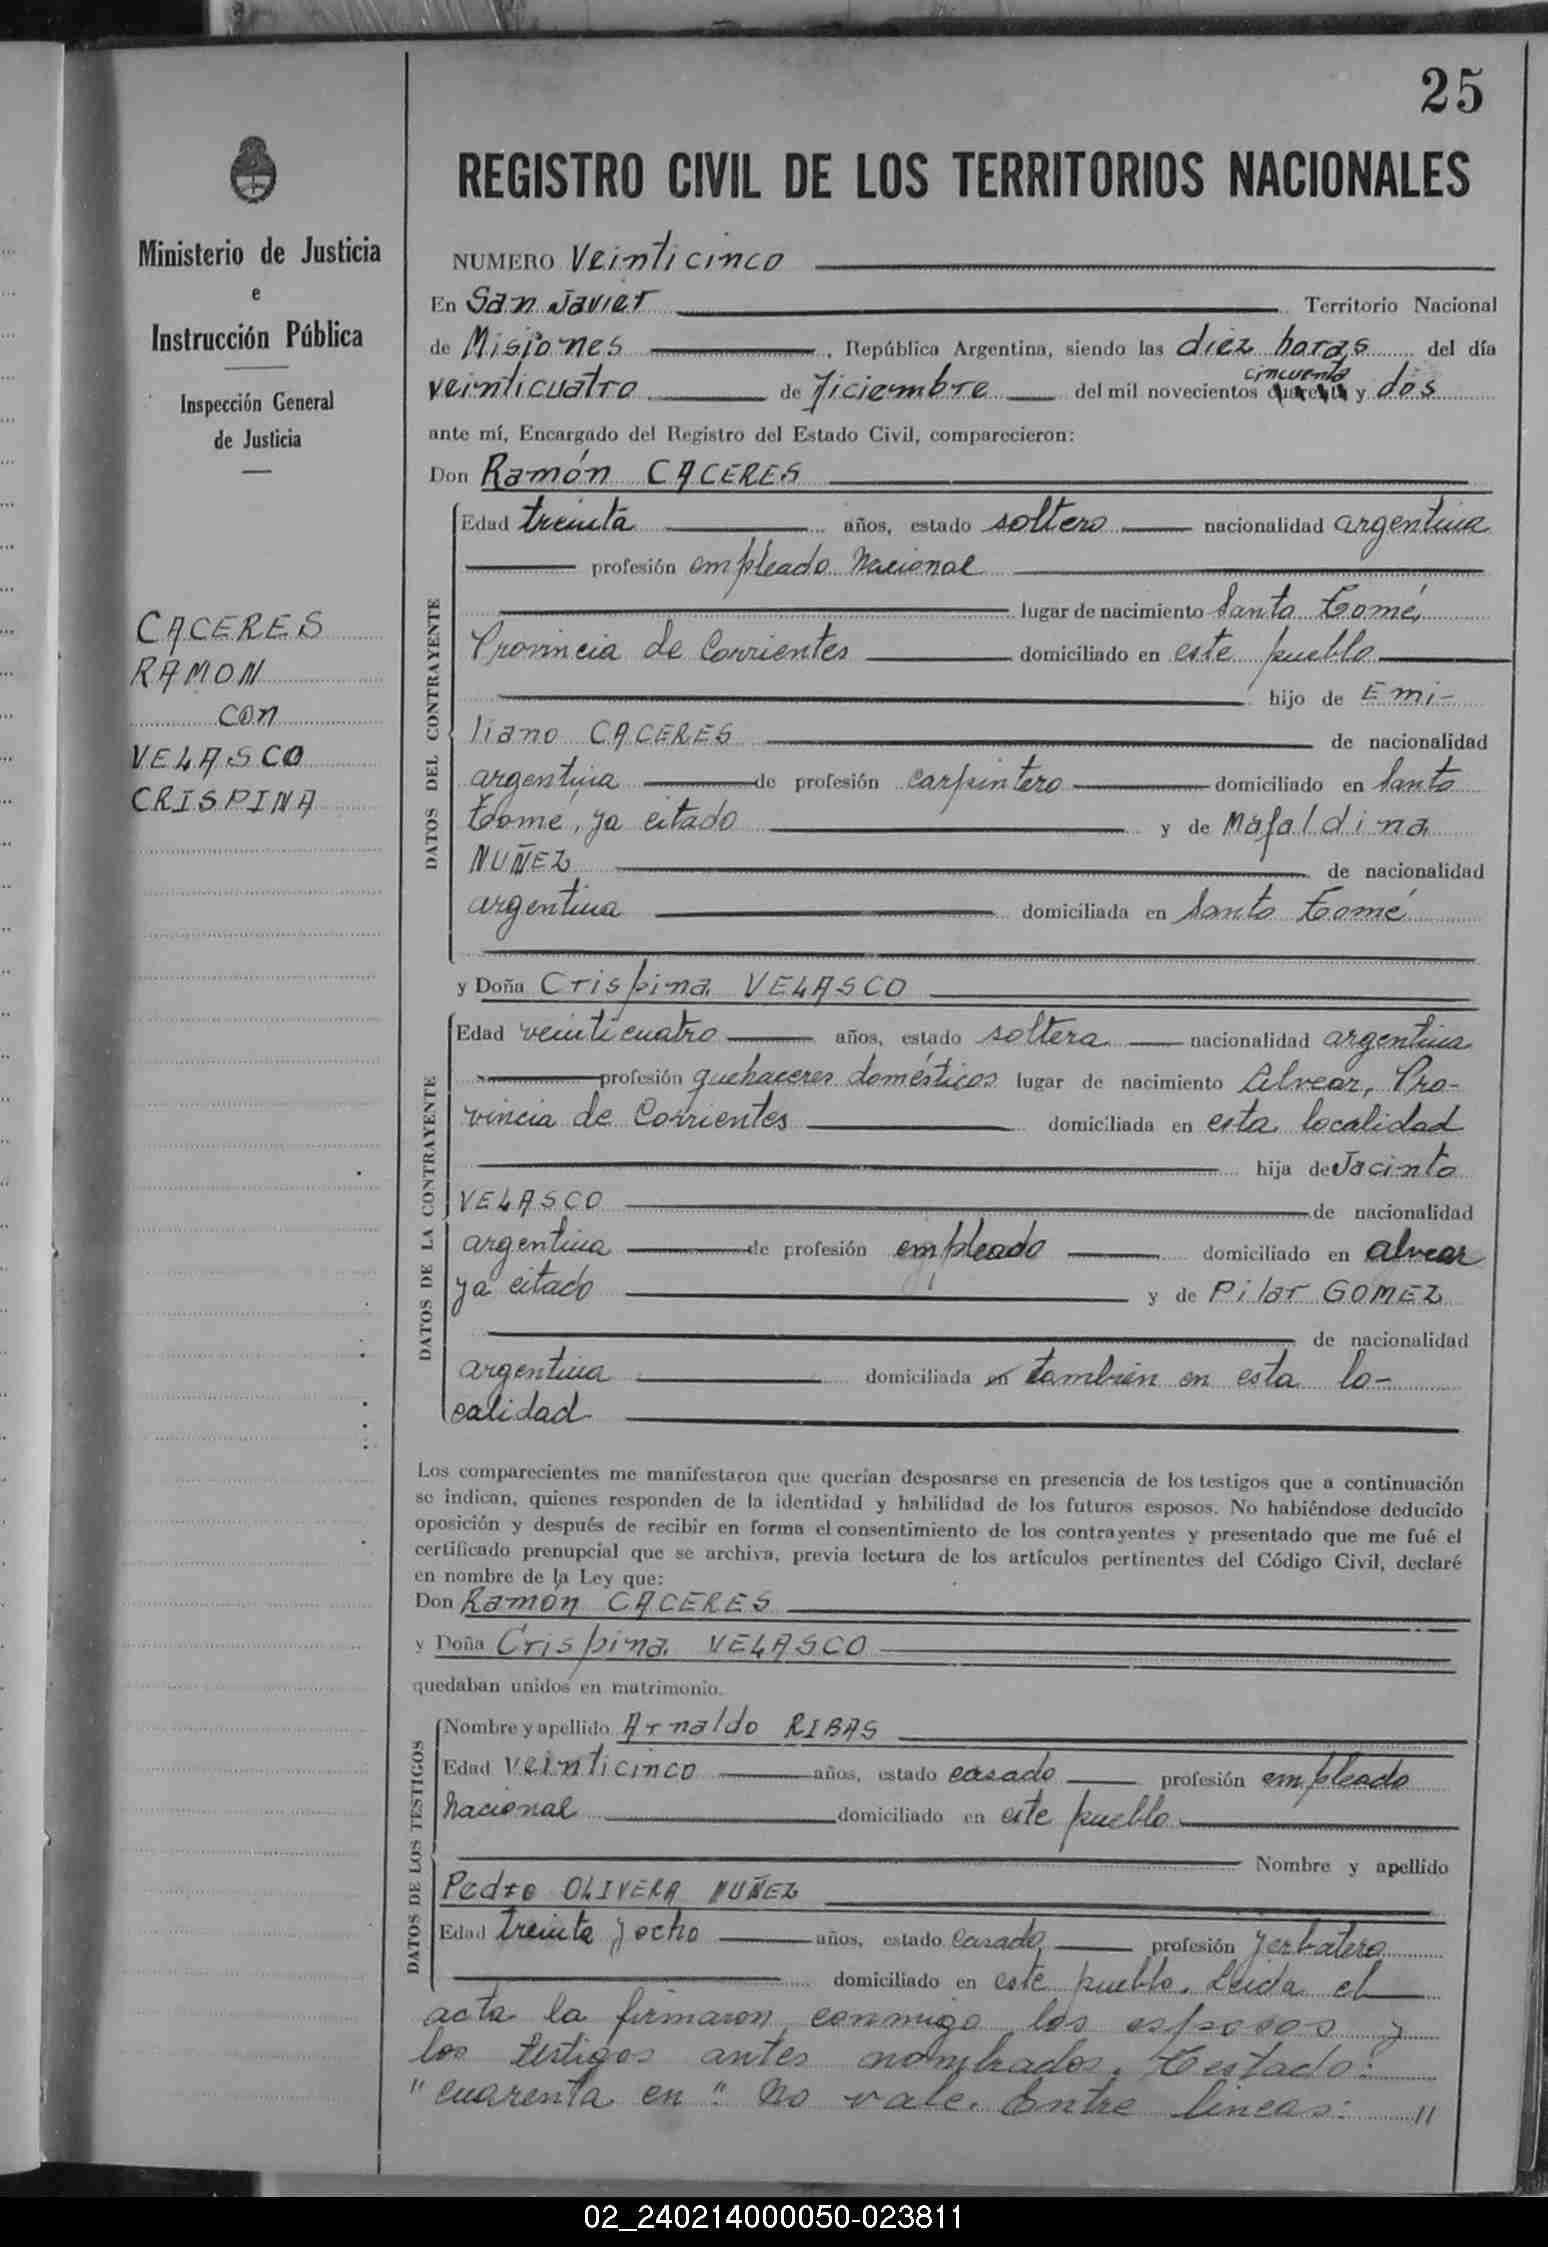 25
Ministerio de Justicia
e
Instrucción Pública
Inspección General
de Justicia
CACERES
RAMON
con
VELASCO
CRISPINA
REGISTRO CIVIL DE LOS TERRITORIOS NACIONALES
NUMERO Veinticinco
En San Javier Territorio Nacional
de Misiones, República Argentina, siendo las diez horas del día
cincuenta
veinticuatro de diciembre del mil novecientos cuarenta y dos
ante mí, Encargado del Registro del Estado Civil, comparecieron:
Don Ramón CACERES
DATOS DEL CONTRAYENTE
Edad treinta años, estado soltero nacionalidad argentina
profesión empleado Nacional
lugar de nacimiento Santo Tomé,
Provincia de Corrientes domiciliado en este pueblo
hijo de Emi-
liano CACERES de nacionalidad
argentina de profesión carpintero domiciliado en Santo
Tomé, ya citado y de Mafaldina
NUÑEZ de nacionalidad
argentina domiciliada en Santo Tomé
y Doña Crispina VELASCO
DATOS DE LA CONTRAYENTE
Edad veinticuatro años, estado soltera nacionalidad argentina
profesión quehaceres domésticos lugar de nacimiento Alvear, Pro-
vincia de Corrientes domiciliada en esta localidad
hija de Jacinto
VELASCO de nacionalidad
argentina de profesión empleado domiciliado en alvear
ya citado y de Pilar GOMEZ
de nacionalidad
argentina domiciliada en tambien en esta lo-
calidad
Los comparecientes me manifestaron que querían desposarse en presencia de los testigos que a continuación
se indican, quienes responden de la identidad y habilidad de los futuros esposos. No habiéndose deducido
oposición y después de recibir en forma el consentimiento de los contrayentes y presentado que me fué el
certificado prenupcial que se archiva, previa lectura de los artículos pertinentes del Código Civil, declaré
en nombre de la Ley que:
Don Ramón CACERES
y Doña Crispina VELASCO
quedaban unidos en matrimonio.
DATOS DE LOS TESTIGOS
Nombre y apellido Arnaldo RIBAS
Edad veinticinco años, estado casado profesión empleado
Nacional domiciliado en este pueblo
Nombre y apellido
Pedro OLIVERA NUÑEZ
Edad treinta y ocho años, estado casado, profesión yerbatero
domiciliado en este pueblo. Leida el
acta la firmaron conmigo los esposos y
los testigos antes nombrados. Testado:
"cuarenta en": No vale. Entre lineas: "
02_240214000050-023811